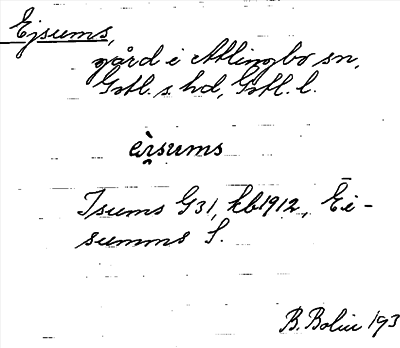 Ejsums,
gård i Atlingbo sn,
Gotl. s. hd, Gotl. l.
èi̯sums
Isums G31, kb1912, Ēi-
summs S.
B. Bolin 193